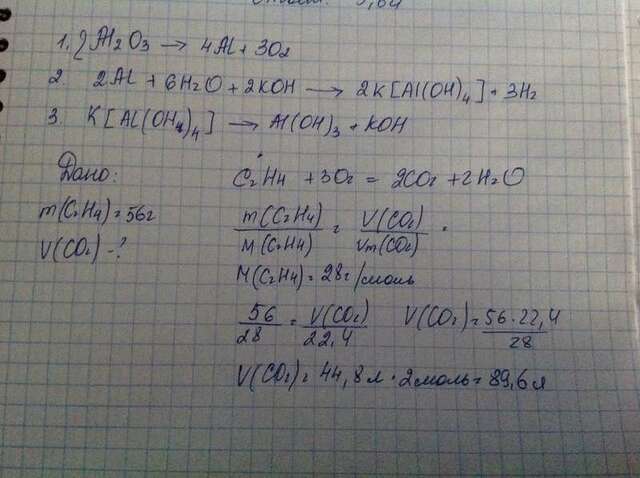 1. 2Al2O3 → 4Al + 3O2
2. 2Al + 6H2O + 2KOH → 2K[Al(OH)4] + 3H2
3. K[Al(OH)4] → Al(OH)3 + KOH
Дано:
C2H4 + 3O2 = 2CO2 + 2H2O
m(C2H4) = 56г
V(CO2) - ?
m(C2H4) / M(C2H4) = V(CO2) / Vm(CO2)
M(C2H4) = 28г/моль
56 / 28 = V(CO2) / 22,4 V(CO2) = 56 · 22,4 / 28
V(CO2) = 44,8л · 2моль = 89,6л